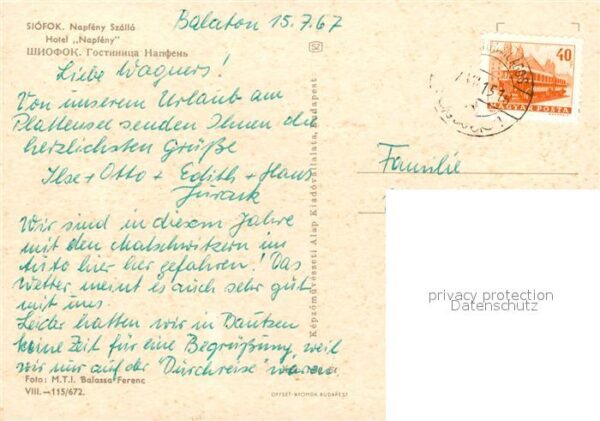 Balaton 15.7.67
SIÓFOK. Napfény Szálló
Hotel „Napfény"
ШИОФОК. Гостиница Напфень
Liebe Wagners!
Von unserem Urlaub am
Plattensee senden Ihnen die
herzlichsten Grüße
Ilse + Otto + Edith + Hans
Wir sind in diesem Jahre
mit den Malschwitzern im
Auto hier her gefahren! Das
Wetter meint es auch sehr gut
mit uns.
Leider hatten wir in Bautzen
keine Zeit für eine Begrüßung, weil
wir nur auf der "Durchreise" waren
Foto: M.T.I. Balassa Ferenc
VIII.—115/672.
OFFSET-NYOMDA BUDAPEST
Képzőművészeti Alap Kiadóvállalata, Budapest
40
MAGYAR POSTA
Familie
privacy protection
Datenschutz